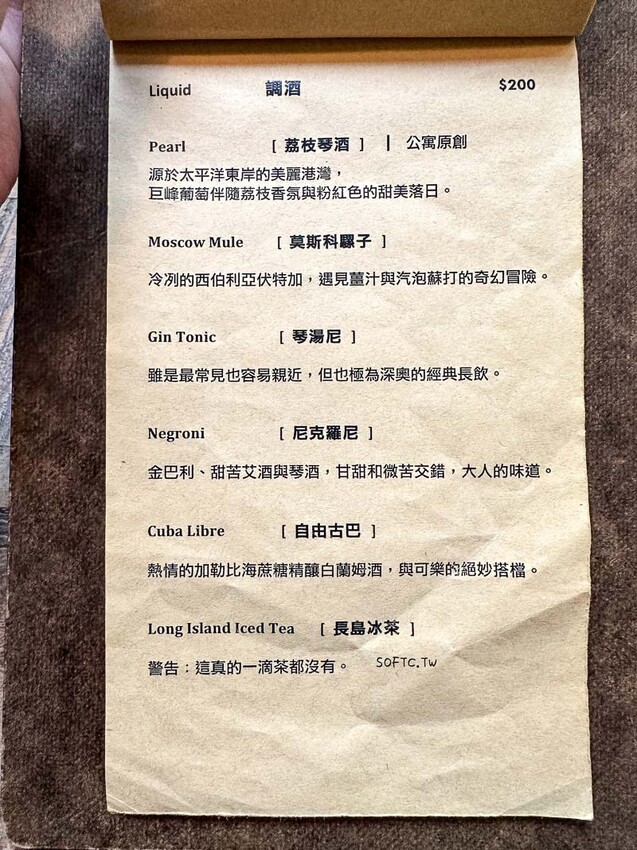 Liquid 調酒 $200
Pearl [ 荔枝琴酒 ] | 公寓原創
源於太平洋東岸的美麗港灣，
巨峰葡萄伴隨荔枝香氛與粉紅色的甜美落日。
Moscow Mule [ 莫斯科騾子 ]
冷冽的西伯利亞伏特加，遇見薑汁與汽泡蘇打的奇幻冒險。
Gin Tonic [ 琴湯尼 ]
雖是最常見也容易親近，但也極為深奧的經典長飲。
Negroni [ 尼克羅尼 ]
金巴利、甜苦艾酒與琴酒，甘甜和微苦交錯，大人的味道。
Cuba Libre [ 自由古巴 ]
熱情的加勒比海蔗糖精釀白蘭姆酒，與可樂的絕妙搭檔。
Long Island Iced Tea [ 長島冰茶 ]
警告：這真的一滴茶都沒有。 SOFTC.TW